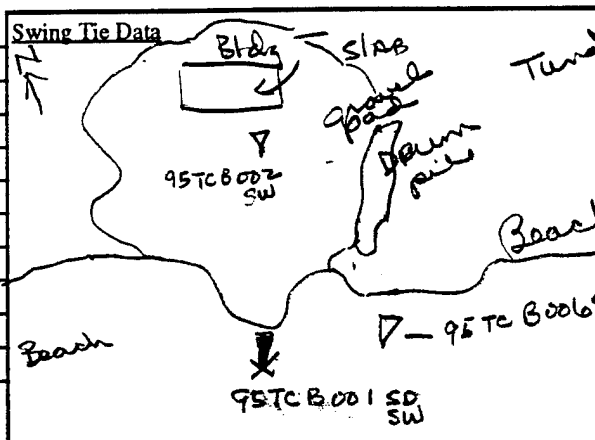 Swing Tie Data
N
Bldg
SLAB
gravel
pad
Drum
pile
95TCB002
SW
Beach
Beach
95TCB006
95TCB001 SD
SW